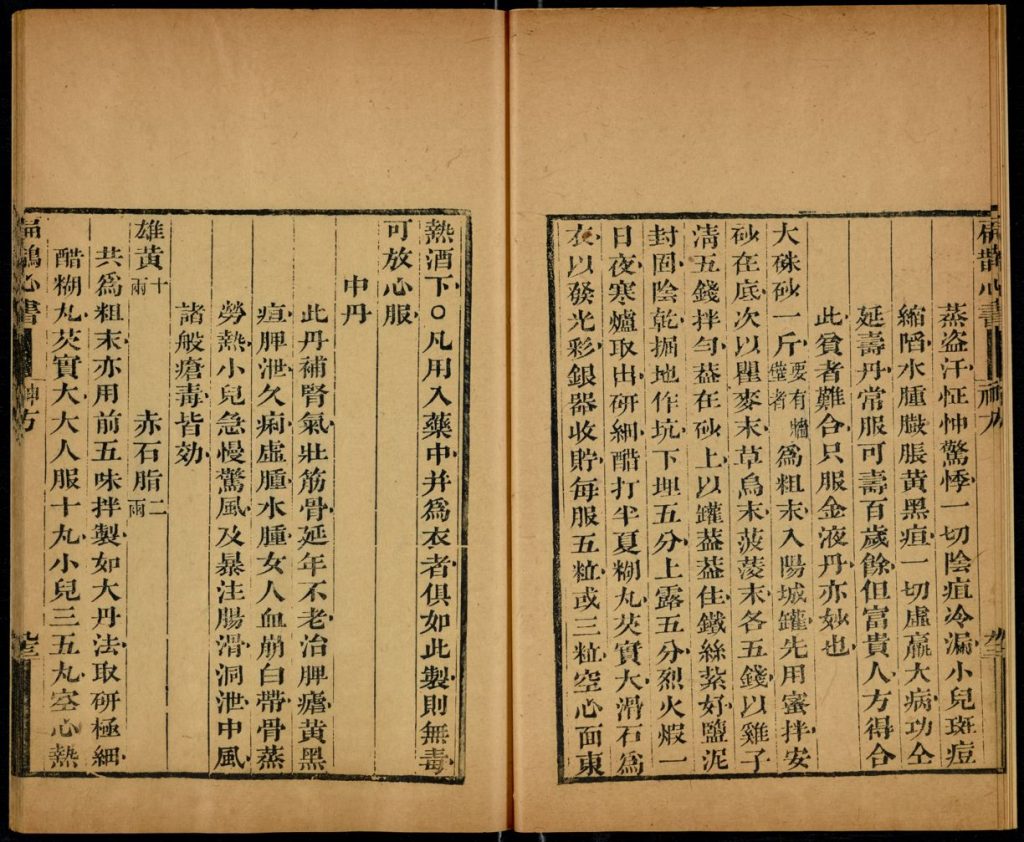 蒸盜汗怔忡驚悸一切陰疽冷漏小兒斑痘
縮䧟水腫臌脹黃黑疸一切虛羸大病功仝
延壽丹常服可壽百歲餘但富貴人方得合
此貧者難合只服金液丹亦妙也
大硃砂一斤要有墻者為粗末入陽城罐先用蜜拌安
砂在底次以瞿麥末草烏末菠薐末各五錢以雞子
清五錢拌勻葢在砂上以罐葢葢住鐵絲紮好鹽泥
封固陰乾掘地作坑下埋五分上露五分烈火煆一
日夜寒爐取出研細醋打半夏糊丸芡實大滑石爲
衣以發光彩銀器收貯每服五粒或三粒空心面東
熱酒下○凡用入藥中并爲衣者俱如此製則無毒
可放心服
中丹
此丹補腎氣壯筋骨延年不老治脾瘧黃黑
疸脾泄久痢虛腫水腫女人血崩白帶骨蒸
勞熱小兒急慢驚風及暴注腸滑洞泄中風
諸般瘡毒皆効
雄黃十兩 赤石脂二兩
共爲粗末亦用前五味拌製如大丹法取研極細
醋糊丸芡實大大人服十丸小兒三五丸空心熱
扁鵲心書 神方